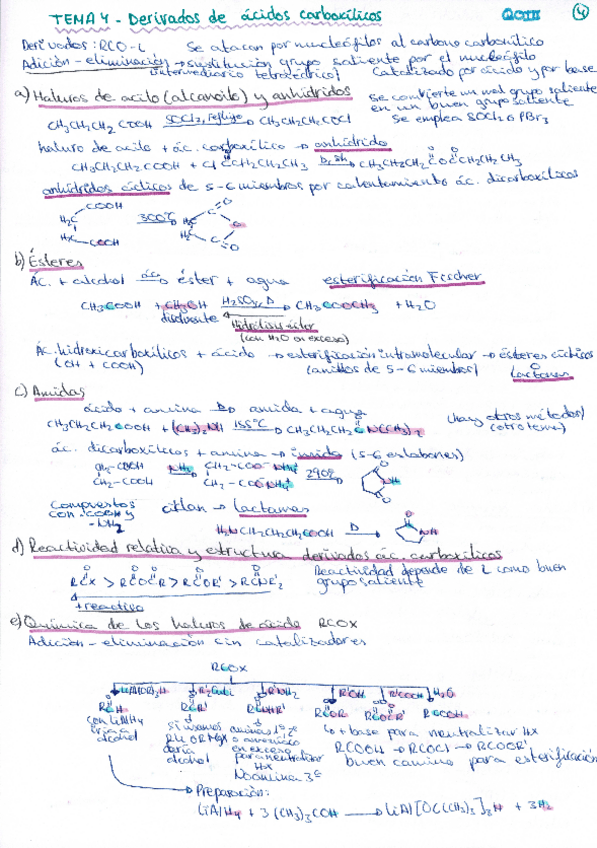 TEMA 4 - Derivados de ácidos carboxílicos QOIII 4
Derivados: RCO-L Se atacan por nucleófilos al carbono carboxílico
Adición-eliminación → sustitución grupo saliente por el nucleófilo
(intermediario tetraédrico) Catalizado por ácido y por base
a) Haluros de acilo (alcanoilo) y anhídridos se convierte un mal grupo saliente
en un buen grupo saliente
CH3CH2CH2COOH SOCl2, reflujo → CH3CH2CH2COCl Se emplea SOCl2 o PBr3
haluro de acilo + ác. carboxílico → anhídrido
CH3CH2CH2COOH + ClCCH2CH2CH3 Δ, 8h → CH3CH2CH2COCCH2CH2CH3
anhídridos cíclicos de 5-6 miembros por calentamiento ác. dicarboxílicos
COOH
H2C 300ºC →
H2C
COOH
b) Ésteres
Ác. + alcohol ácido → éster + agua esterificación Fischer
CH3COOH + CH3OH H2SO4, Δ CH3COOCH3 + H2O
disolvente Hidrólisis éster
(con H2O en exceso)
Ác. hidroxicarboxílicos + ácido → esterificación intramolecular → ésteres cíclicos
(OH + COOH) (anillos de 5-6 miembros) Lactonas
c) Amidas
ácido + amina Δ → amida + agua
CH3CH2CH2COOH + (CH3)2NH 155ºC → CH3CH2CH2CN(CH3)2 (hay otros métodos)
(otro tema)
ác. dicarboxílicos + amina → imida (5-6 eslabones)
CH2-COOH NH3 → CH2-COO- NH4+ 290º →
CH2-COOH CH2-COO- NH4+ NH
Compuestos ciclan → Lactamas
con -COOH y
-NH2 H2NCH2CH2CH2COOH Δ → NH
d) Reactividad relativa y estructura derivados ác. carboxílicos
RCX > RCOCR > RCOR' > RCNR'2 Reactividad depende de L como buen
grupo saliente
+ reactivo
e) Química de los haluros de ácido RCOX
Adición-eliminación sin catalizadores
RCOX
LiAl(OR)3H R'2CuLi R'NH2 R'OH R'COOH H2O
RCH RCR' RCNHR' RCOR' RCOCR' RCOOH
con LiAlH4 si usamos aminas 1ª, 2ª + base para neutralizar HX
iría a RLi o RMgX o amoniaco RCOOH → RCOCl → RCOOR'
alcohol daría en exceso buen camino para esterificación
alcohol para neutralizar
HX
No amina 3ª
Preparación:
LiAlH4 + 3 (CH3)3COH → LiAl[OC(CH3)3]3H + 3H2